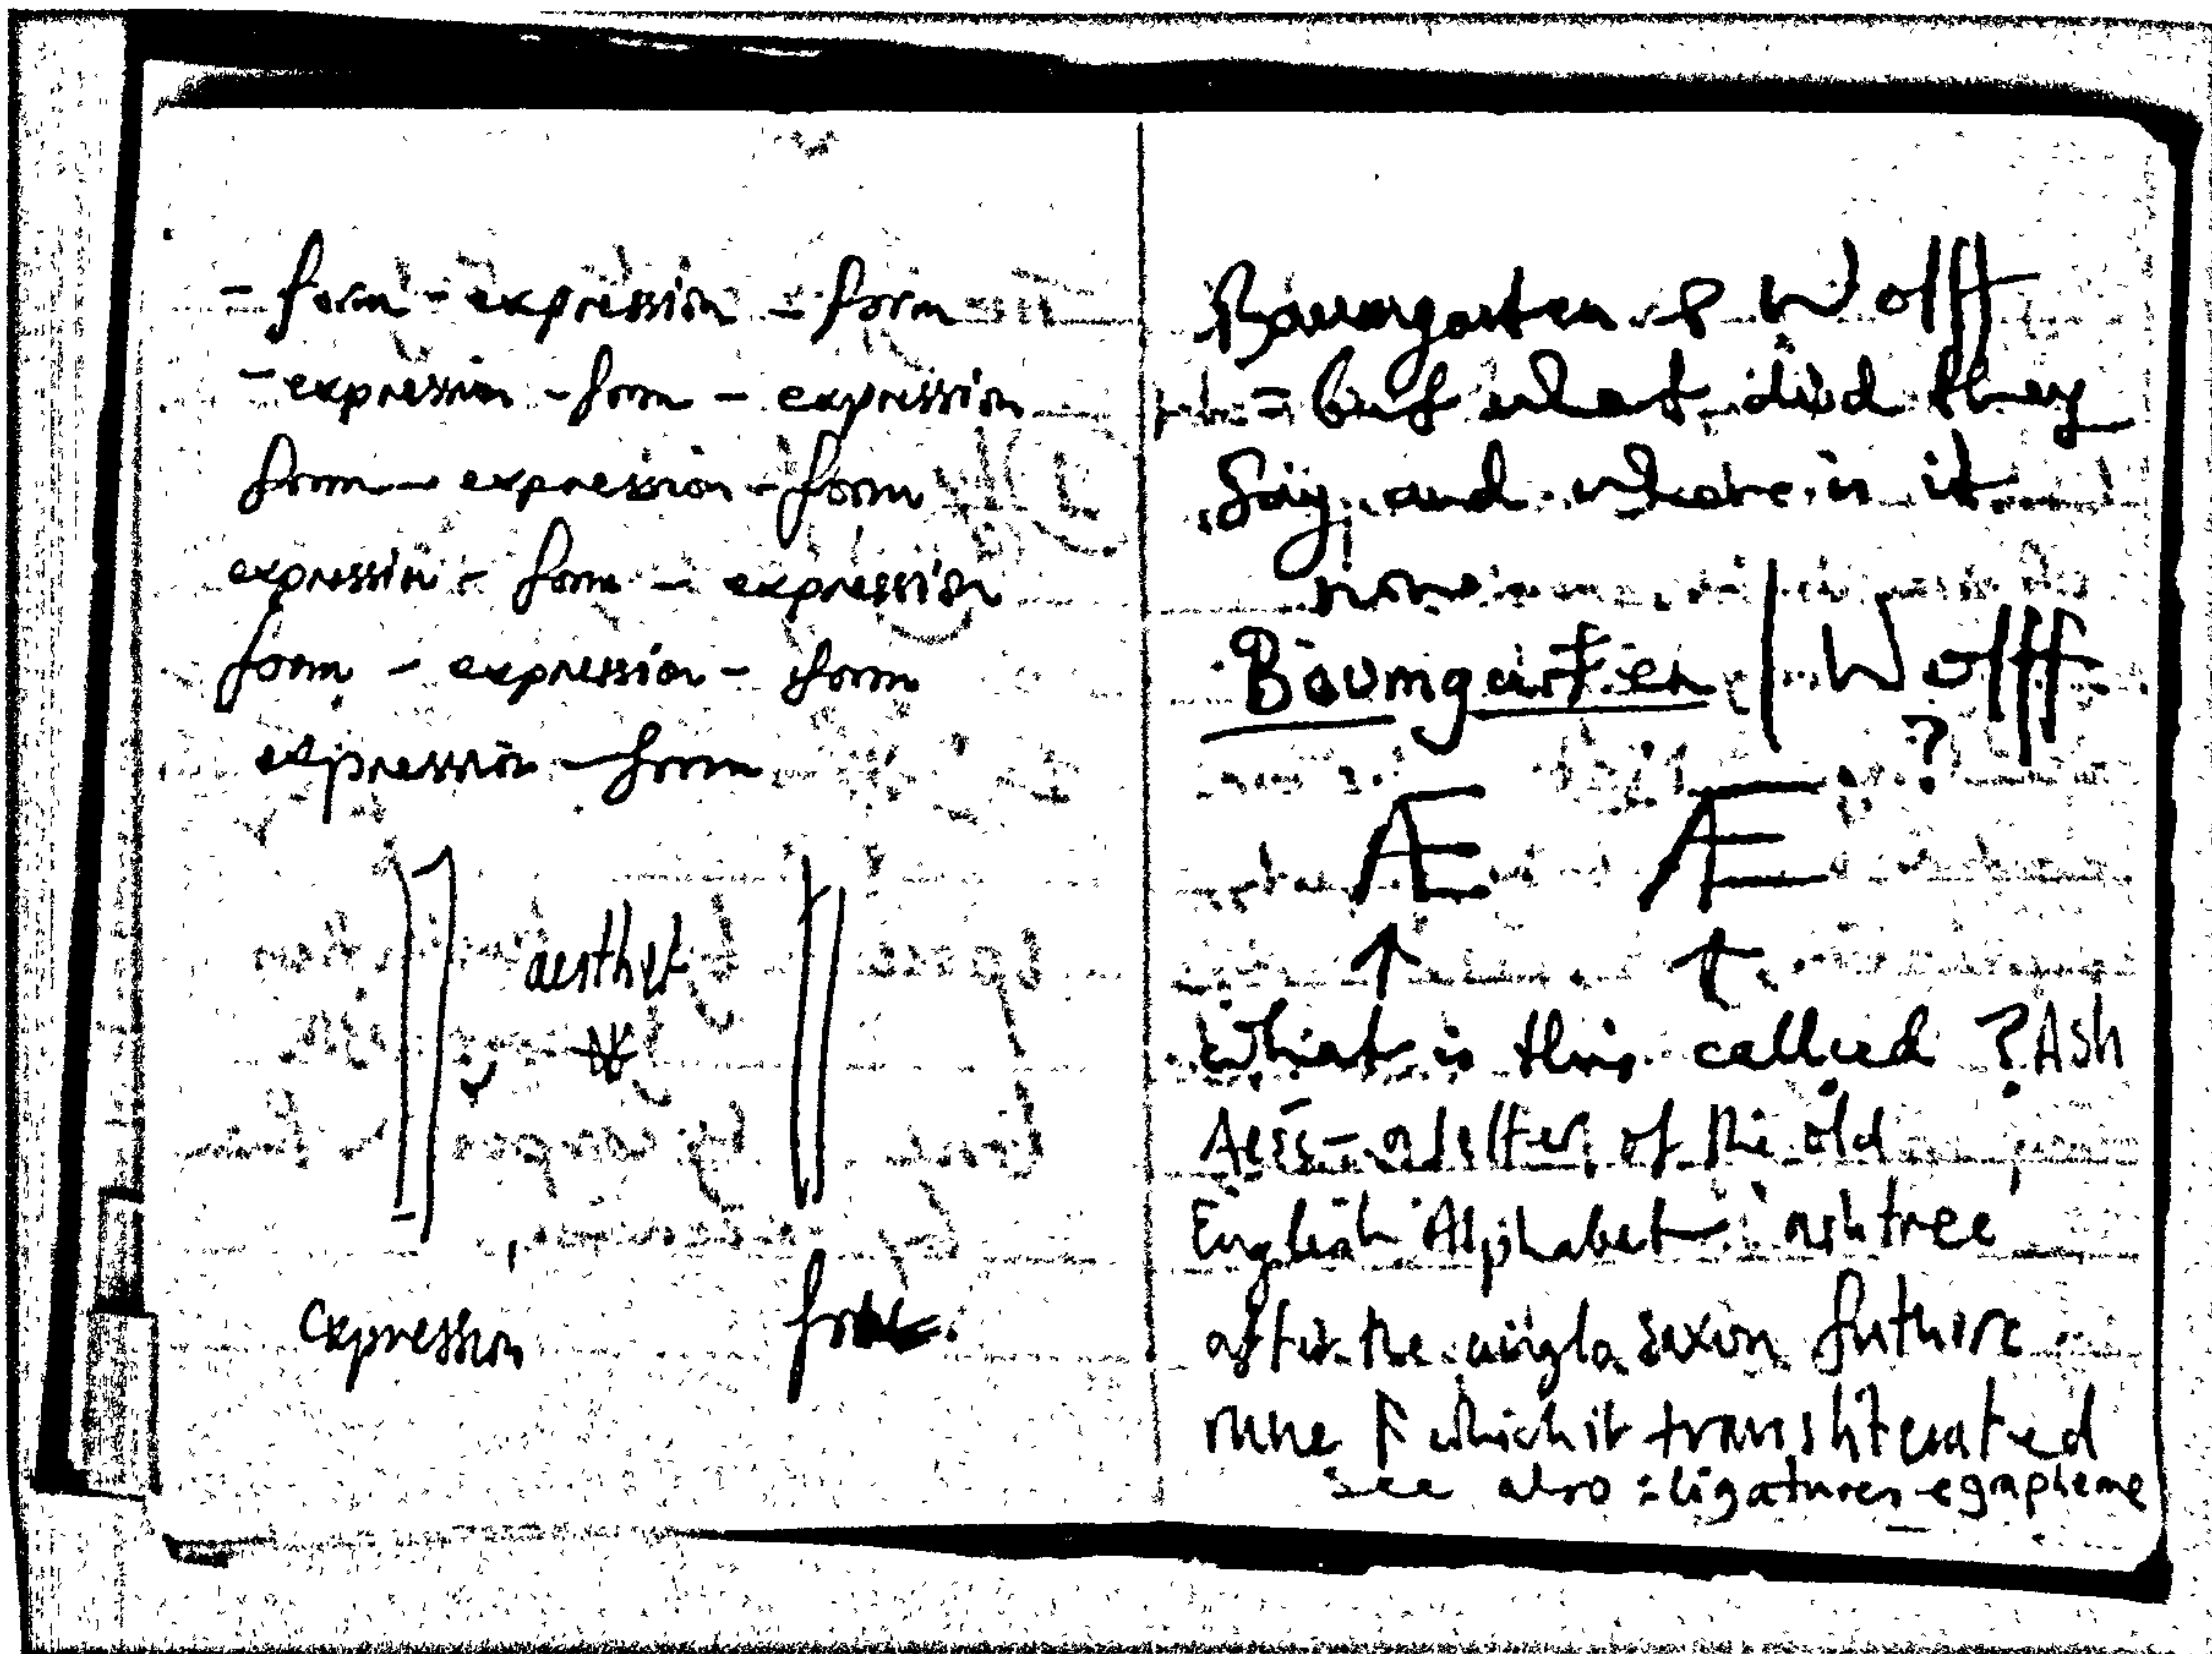 - form - expression - form
- expression - form - expression
form - expression - form
expression - form - expression
form - expression - form
expression - form
aesthet
expression
Baumgarten & Wolff
= but what did they
say and where is it
now
Baumgarten / Wolff
?
Æ Æ
↑ ↑
What is this called ? Ash
Aesc - a letter of the old
English Alphabet : ash tree
after the anglo saxon futhorc
rune which it transliterated
see also : ligatures - grapheme